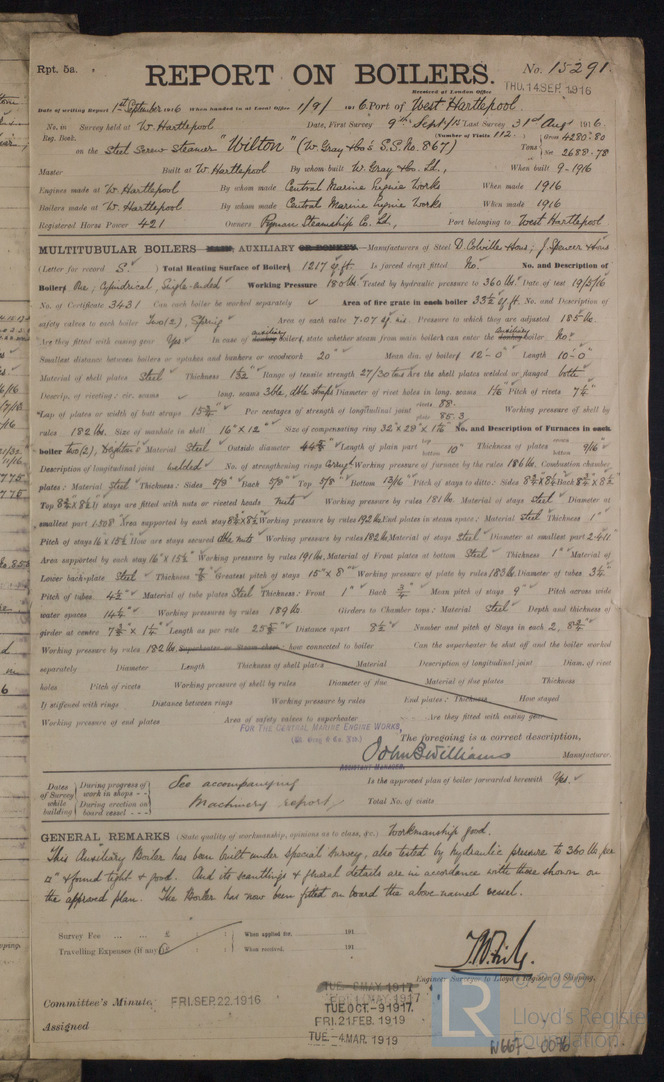 Rpt. 5a.
REPORT ON BOILERS.
No. 15291
Received at London Office THU. 14 SEP. 1916
Date of writing Report 1st September 1916 When handed in at Local Office 1/9/ 1916 Port of West Hartlepool
No. in Survey held at W. Hartlepool Date, First Survey 9th Sept/15 Last Survey 31st Aug 1916
Reg. Book. (Number of Visits 112)
on the Steel Screw Steamer "Wilton" (W. Gray & Co's S.S. No. 867) Tons Gross 4280.80 Net 2688.78
Master Built at W. Hartlepool By whom built W. Gray & Co. Ld., When built 9-1916
Engines made at W. Hartlepool By whom made Central Marine Engine Works When made 1916
Boilers made at W. Hartlepool By whom made Central Marine Engine Works When made 1916
Registered Horse Power 421 Owners Ryman Steamship Co. Ld., Port belonging to West Hartlepool
MULTITUBULAR BOILERS MAIN, AUXILIARY OR DONKEY.—Manufacturers of Steel D. Colville & Sons; J. Spencer & Sons
(Letter for record S.) Total Heating Surface of Boilers 1217 sq. ft. Is forced draft fitted No. No. and Description of
Boilers One, Cylindrical, Single-ended Working Pressure 180 lbs. Tested by hydraulic pressure to 360 lbs. Date of test 19/5/16
No. of Certificate 3431 Can each boiler be worked separately Area of fire grate in each boiler 33½ sq. ft. No. and Description of
safety valves to each boiler Two (2), Spring Area of each valve 7.07 sq. ins. Pressure to which they are adjusted 185 lbs.
Are they fitted with easing gear Yes In case of auxiliary donkey boilers, state whether steam from main boilers can enter the auxiliary donkey boiler No.
Smallest distance between boilers or uptakes and bunkers or woodwork 20" Mean dia. of boilers 12'-0" Length 10'-0"
Material of shell plates Steel Thickness 1 1/32" Range of tensile strength 27/30 tons Are the shell plates welded or flanged both
Descrip. of riveting: cir. seams long. seams 3ble, dble straps Diameter of rivet holes in long. seams 1 1/16 Pitch of rivets 7¼"
Lap of plates or width of butt straps 15¾" Per centages of strength of longitudinal joint rivets 88. plate 85.3 Working pressure of shell by
rules 182 lbs. Size of manhole in shell 16" x 12" Size of compensating ring 32" x 28" No. and Description of Furnaces in each
boiler two (2), Deighton's Material Steel Outside diameter Length of plain part top bottom 10" Thickness of plates crown bottom 9/16"
Description of longitudinal joint welded No. of strengthening rings Working pressure of furnace by the rules 186 lbs. Combustion chamber
plates: Material Steel Thickness: Sides 5/8" Back 5/8" Top 5/8" Bottom 13/16" Pitch of stays to ditto: Sides Back
Top If stays are fitted with nuts or riveted heads Nuts Working pressure by rules 181 lbs. Material of stays Steel Diameter at
smallest part 1.508" Area supported by each stay Working pressure by rules 192 lbs. End plates in steam space: Material Steel Thickness 1"
Pitch of stays 16" x 15½" How are stays secured dble nuts Working pressure by rules 182 lbs. Material of stays Steel Diameter at smallest part 2.411"
Area supported by each stay 16" x 15½" Working pressure by rules 191 lbs. Material of Front plates at bottom Steel Thickness 1" Material of
Lower back plate Steel Thickness 7/8" Greatest pitch of stays 15" x 8" Working pressure of plate by rules 183 lbs. Diameter of tubes 3¼"
Pitch of tubes 4½" Material of tube plates Steel Thickness: Front 1" Back ¾" Mean pitch of stays 9" Pitch across wide
water spaces 14¼" Working pressures by rules 189 lbs. Girders to Chamber tops: Material Steel Depth and thickness of
girder at centre Length as per rule Distance apart 8½" Number and pitch of Stays in each 2, 8¾"
Working pressure by rules 182 lbs. Superheater or Steam chest: how connected to boiler Can the superheater be shut off and the boiler worked
separately Diameter Length Thickness of shell plates Material Description of longitudinal joint Diam. of rivet
holes Pitch of rivets Working pressure of shell by rules Diameter of flue Material of flue plates Thickness
If stiffened with rings Distance between rings Working pressure by rules End plates: Thickness How stayed
Working pressure of end plates Area of safety valves to superheater Are they fitted with easing gear
FOR THE CENTRAL MARINE ENGINE WORKS,
(W. Gray & Co. Ltd.) The foregoing is a correct description,
John B Williams Manufacturer.
ASSISTANT MANAGER.
Dates of Survey while building During progress of work in shops - - See accompanying Is the approved plan of boiler forwarded herewith Yes.
During erection on board vessel - - - Machinery report Total No. of visits
GENERAL REMARKS (State quality of workmanship, opinions as to class, &c.) Workmanship good.
This Auxiliary Boiler has been built under special survey, also tested by hydraulic pressure to 360 lbs. per
□" & found tight & good. And its scantlings & general details are in accordance with those shown on
the approved plan. The Boiler has now been fitted on board the above named vessel.
Survey Fee ... ... £ : : When applied for, 191
Travelling Expenses (if any) £ : : When received, 191
Engineer Surveyor to Lloyd's Register of Shipping.
Committee's Minute FRI. SEP. 22. 1916
TUE. 8 MAY. 1917
FRI. 11 MAY. 1917
TUE. OCT. -9 1917.
Assigned FRI. 21 FEB. 1919
TUE. -4 MAR. 1919
© 2020
LR
Lloyd's Register
Foundation
W667-0096